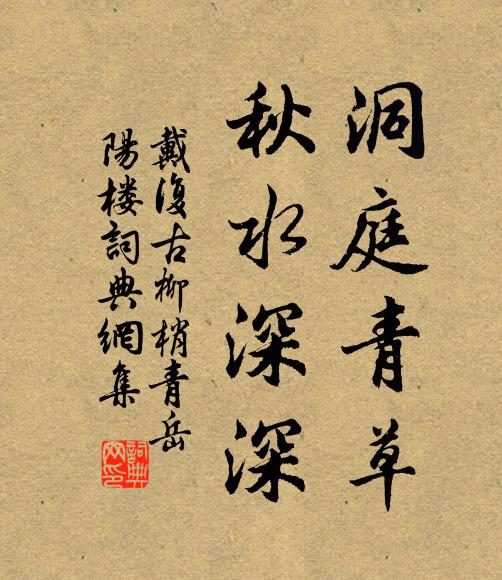 洞庭青草
秋水深深
戴復古柳梢青岳
陽楼詞典網集
詞典网印